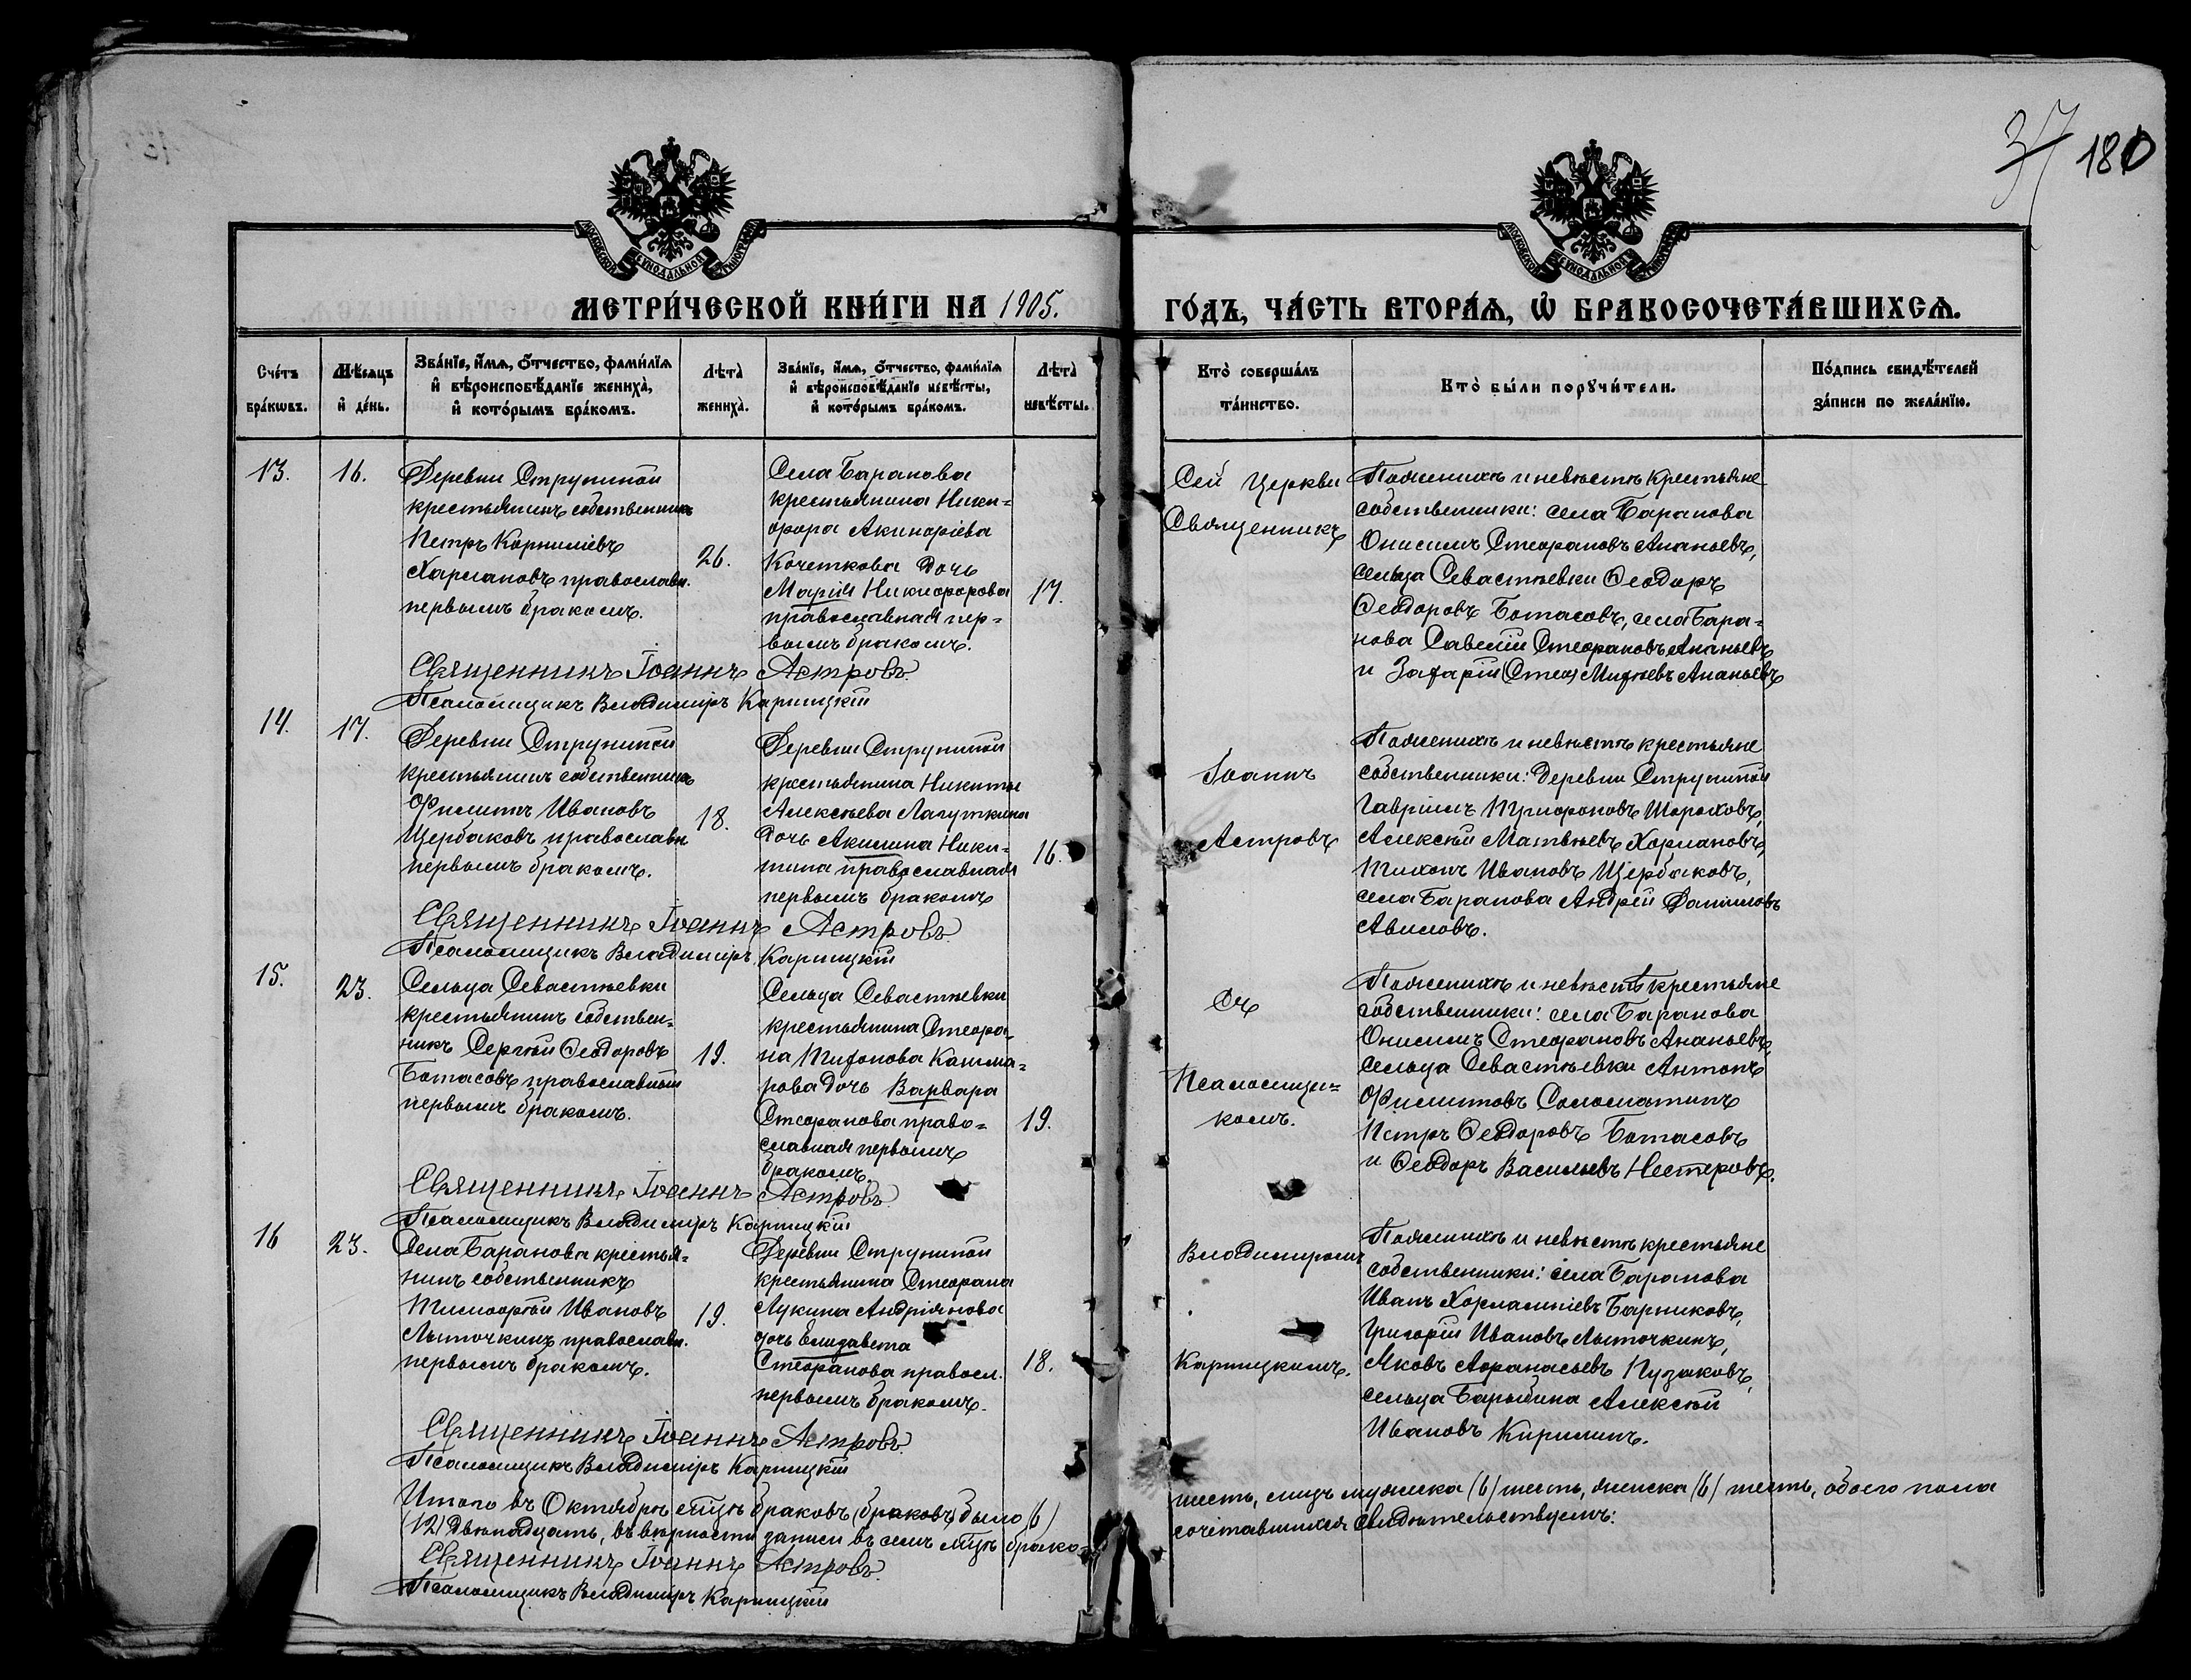 37 180
МОСКОВСКОЙ СѴНОДАЛЬНОЙ ТИПОГРАФІИ
МОСКОВСКОЙ СѴНОДАЛЬНОЙ ТИПОГРАФІИ
МЕТРИ́ЧЕСКОЙ КНИ́ГИ НА 1905.
ГО́ДЪ, ЧА́СТЬ ВТОРА́Я, Ѡ БРАКОСОЧЕТА́ВШИХСЯ.
Сче́тъ бра́кωвъ.
Мѣ́сяцъ и де́нь.
Зва́нїе, и́мя, о́тчество, фами́лїя
и вѣроисповѣ́данїе жениха̀,
и кото́рымъ бра́комъ.
Лѣта̀ жениха̀.
Зва́нїе, и́мя, о́тчество, фами́лїя
и вѣроисповѣ́данїе невѣ́сты,
и кото́рымъ бра́комъ.
Лѣта̀ невѣ́сты.
Кто̀ соверша́лъ та́инство.
Кто̀ бы́ли порꙋчи́тели.
По́дпись свидѣ́телей за́писи по жела́нїю.
13.
16.
Деревни Струпиной
крестьянинъ собственникъ
Петръ Корниліевъ
Харлановъ православн.
первымъ бракомъ.
26.
Села Баранова
крестьянина Ники-
фора Акинфіева
Кочеткова дочь
Марія Никифорова
православная пер-
вымъ бракомъ.
17.
Сей Церкви
Священникъ
По женихѣ и невѣстѣ крестьяне
собственники: села Баранова
Онисимъ Стефановъ Ананьевъ,
сельца Севастѣевки Ѳеодоръ
Ѳеодоровъ Боташовъ, села Бара-
нова Савелій Стефановъ Ананьевъ
и Захарій (Стеф) Михѣевъ Ананьевъ
Священникъ Іоаннъ Астровъ.
Псаломщикъ Владиміръ Карницкій
14.
17.
Деревни Струпиной
крестьянинъ собственникъ
Филиппъ Ивановъ
Щербаковъ православн
первымъ бракомъ.
18.
Деревни Струпиной
крестьянина Никиты
Алексѣева Лагуткина
дочь Акилина Ники-
тина православная
первымъ бракомъ
16.
Іоаннъ
Астровъ
По женихѣ и невѣстѣ крестьяне
собственники: деревни Струпиной
Гавріилъ Трифоновъ Шороховъ,
Алексѣй Матвѣевъ Харлановъ,
Тихонъ Ивановъ Щербаковъ,
села Баранова Андрей Даниловъ
Авиловъ.
Священникъ Іоаннъ Астровъ.
Псаломщикъ Владиміръ Карницкій
15.
23.
Сельца Севастѣевки
крестьянинъ собствен-
никъ Сергѣй Ѳеодоровъ
Боташовъ православный
первымъ бракомъ.
19.
Сельца Севастѣевки
крестьянина Стефа-
на Тихонова Кашма-
рова дочь Варвара
Стефанова право-
славная первымъ
бракомъ.
19.
Съ
Псаломщи-
комъ.
По женихѣ и невѣстѣ крестьяне
собственники: села Баранова
Онисимъ Стефановъ Ананьевъ,
сельца Севастѣевки Антонъ
Филипповъ Соломатинъ
Петръ Ѳеодоровъ Боташовъ
и Ѳеодоръ Васильевъ Нестеровъ.
Священникъ Іоаннъ Астровъ.
Псаломщикъ Владиміръ Карницкій
16
23.
Села Баранова крестья-
нинъ собственникъ
Тимофѣй Ивановъ
Лыточкинъ православн.
первымъ бракомъ.
19.
Деревни Струпиной
крестьянина Стефана
Лукина Андріянова
дочь Елизавета
Стефанова правосл.
первымъ бракомъ.
18.
Владиміромъ
Карницкимъ.
По женихѣ и невѣстѣ крестьяне
собственники: села Баранова
Иванъ Харлампіевъ Барниковъ,
Григорій Ивановъ Лыточкинъ,
Яковъ Афанасьевъ Пузаковъ,
сельца Барыбина Алексѣй
Ивановъ Кирилинъ.
Священникъ Іоаннъ Астровъ.
Псаломщикъ Владиміръ Карницкій
Итого въ Октябрѣ мѣсяцѣ браковъ (браковъ) было (6) шесть, лицъ мужска (6) шесть, женска (6) шесть, обоего пола
(12) двѣнадцать, въ вѣрности записи въ семъ мѣсяцѣ брако-сочетавшихся свидѣтельствуемъ:
Священникъ Іоаннъ Астровъ.
Псаломщикъ Владиміръ Карницкій